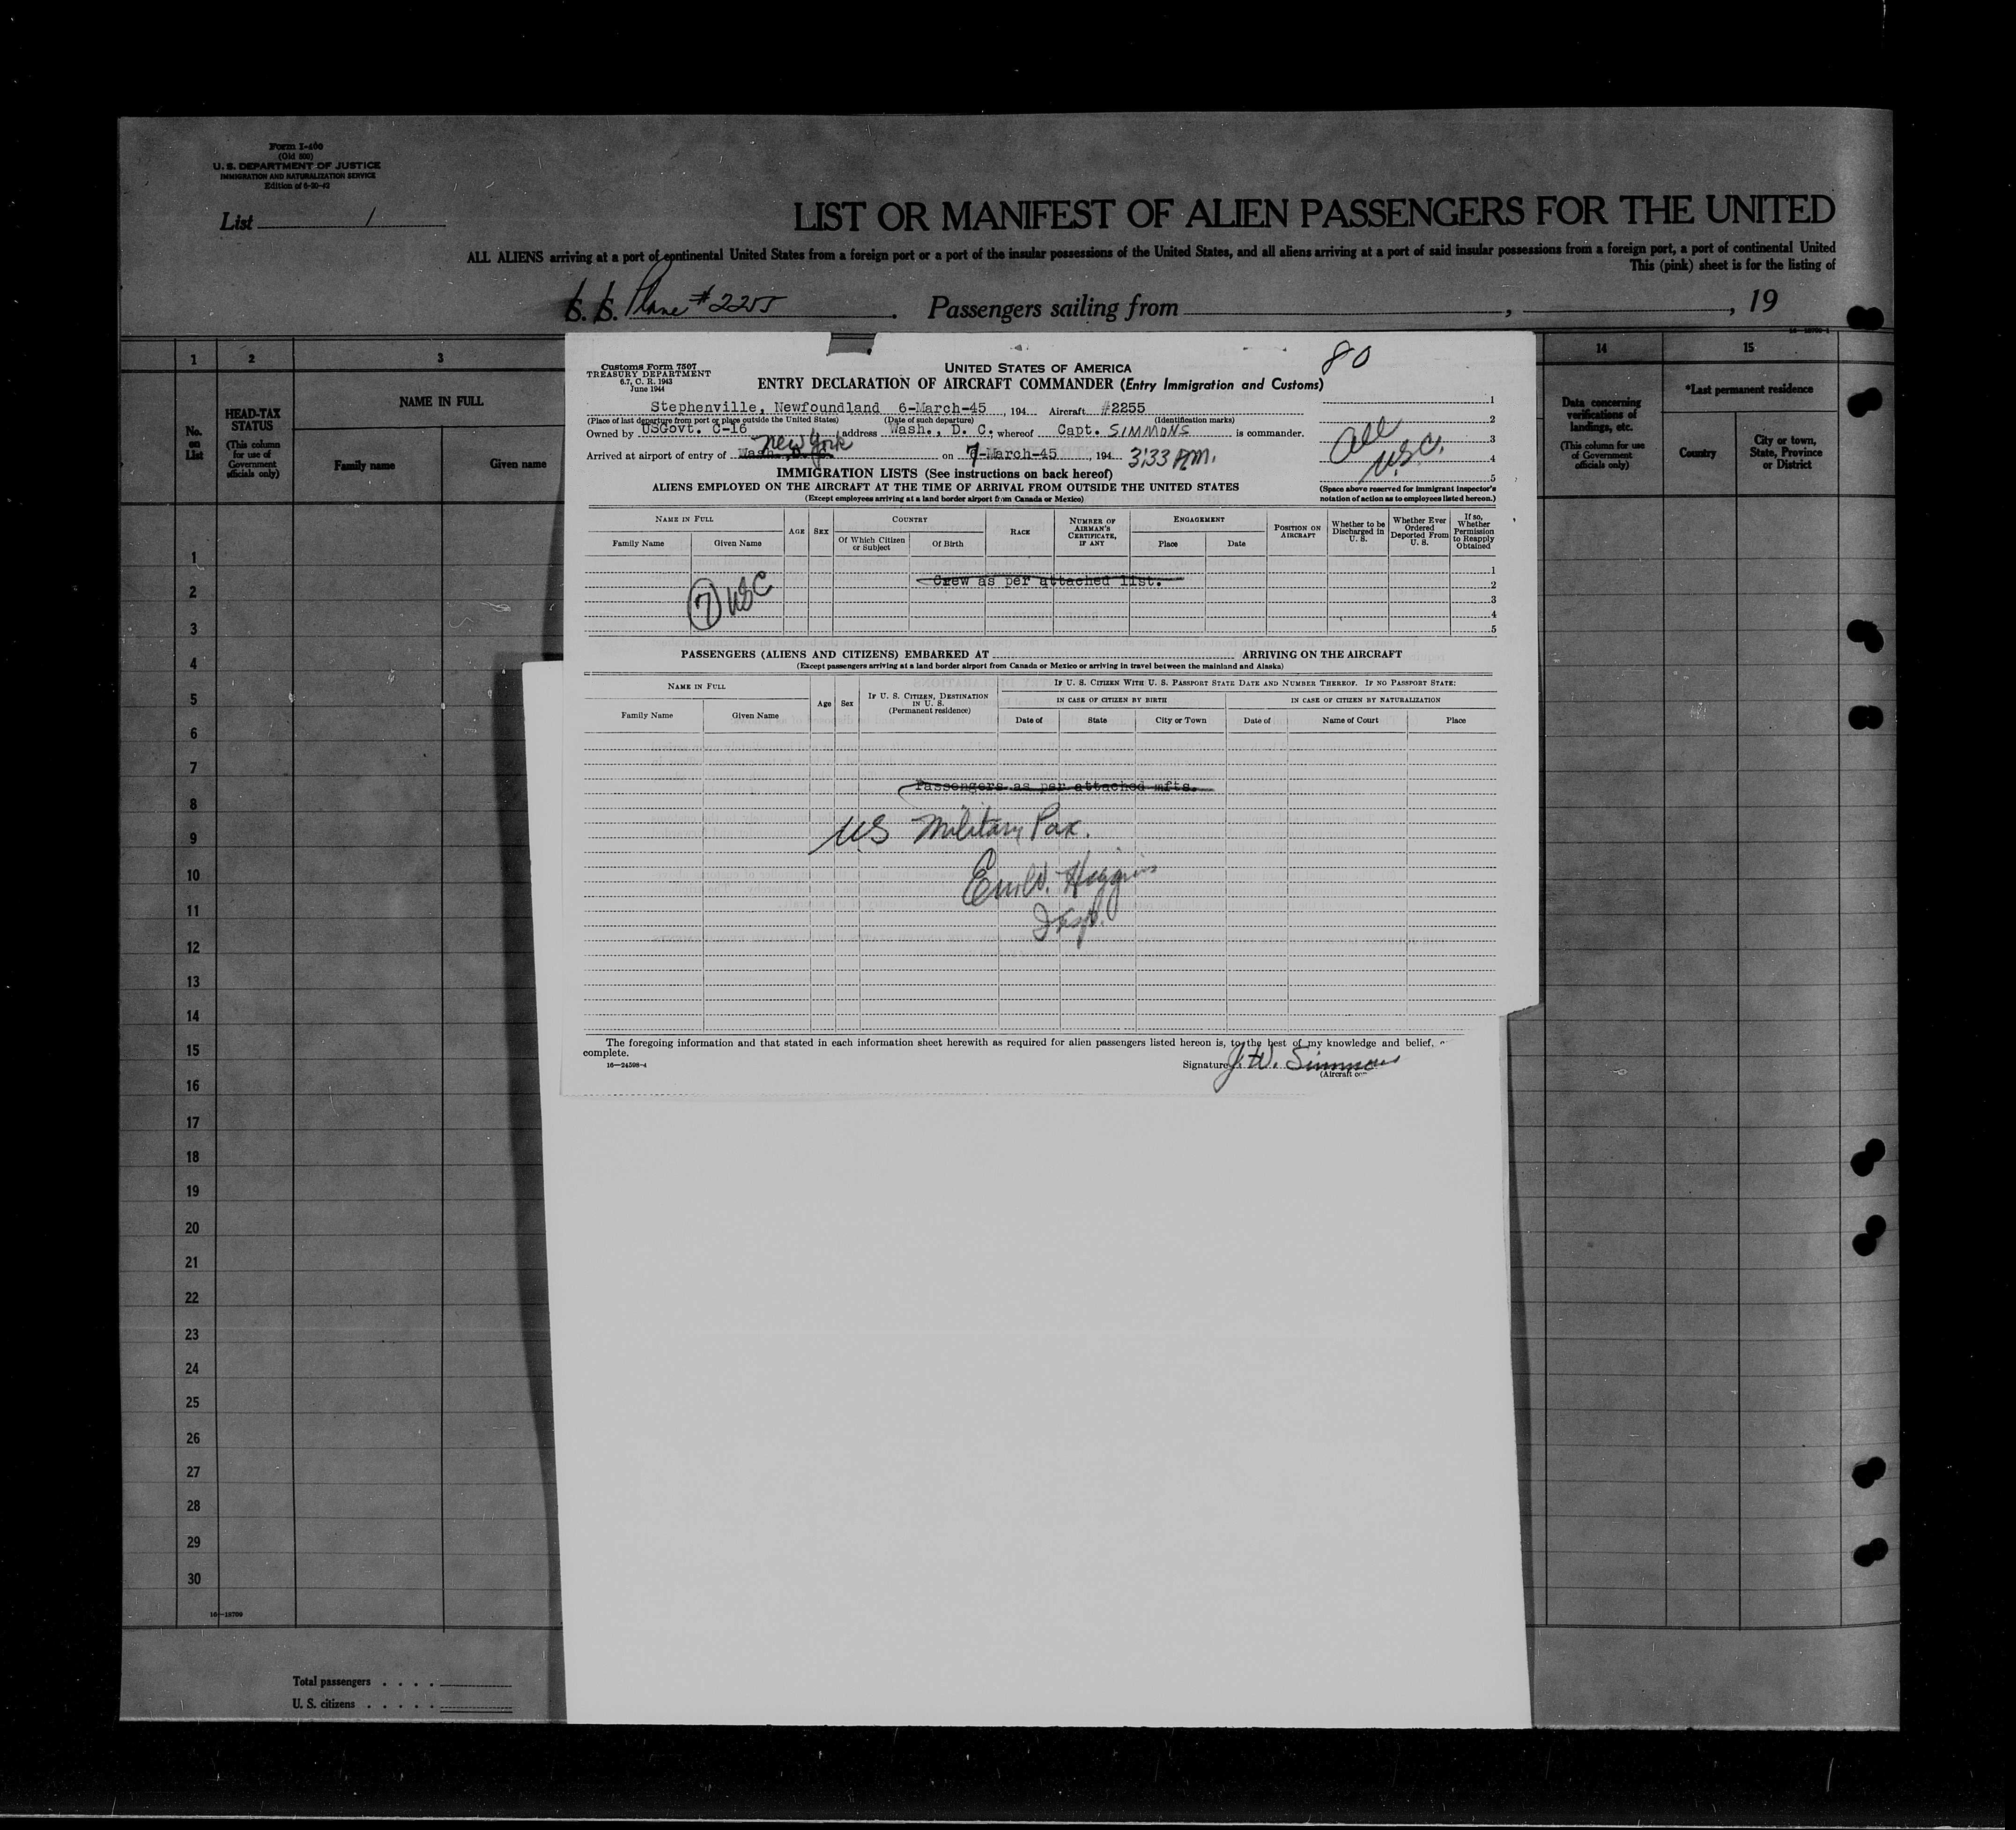 Form I-400
(Old 500)
U. S. DEPARTMENT OF JUSTICE
IMMIGRATION AND NATURALIZATION SERVICE
Edition of 6-30-42
List 1
LIST OR MANIFEST OF ALIEN PASSENGERS FOR THE UNITED
ALL ALIENS arriving at a port of continental United States from a foreign port or a port of the insular possessions of the United States, and all aliens arriving at a port of said insular possessions from a foreign port, a port of continental United
This (pink) sheet is for the listing of
S. S. Plane #2255. Passengers sailing from , , 19
1 2 3 14 15
No. on List
HEAD-TAX STATUS
(This column for use of Government officials only)
NAME IN FULL
Family name Given name
Data concerning verifications of landings, etc.
(This column for use of Government officials only)
*Last permanent residence
Country
City or town, State, Province or District
1
2
3
4
5
6
7
8
9
10
11
12
13
14
15
16
17
18
19
20
21
22
23
24
25
26
27
28
29
30
16—18709
Total passengers . . . .
U. S. citizens . . . . .
Customs Form 7507
TREASURY DEPARTMENT
6.7, C. R. 1943
June 1944
UNITED STATES OF AMERICA
80
ENTRY DECLARATION OF AIRCRAFT COMMANDER (Entry Immigration and Customs)
Stephenville, Newfoundland 6-March-45, 194 Aircraft #2255
(Place of last departure from port or place outside the United States) (Date of such departure) (Identification marks)
Owned by USGovt. C-16 address Wash., D. C., whereof Capt. SIMMONS is commander.
New York
Arrived at airport of entry of Wash., D. C. on 7-March-45, 194 3:33 AM.
1
2
3
4
5
All
U.S.C.
(Space above reserved for immigrant inspector's
notation of action as to employees listed hereon.)
IMMIGRATION LISTS (See instructions on back hereof)
ALIENS EMPLOYED ON THE AIRCRAFT AT THE TIME OF ARRIVAL FROM OUTSIDE THE UNITED STATES
(Except employees arriving at a land border airport from Canada or Mexico)
NAME IN FULL
Family Name Given Name
AGE SEX
COUNTRY
Of Which Citizen or Subject Of Birth
RACE
NUMBER OF AIRMAN'S CERTIFICATE, IF ANY
ENGAGEMENT
Place Date
POSITION ON AIRCRAFT
Whether to be Discharged in U. S.
Whether Ever Ordered Deported From U. S.
If so, Whether Permission to Reapply Obtained
1
2
3
4
5
Crew as per attached list.
7 USC
PASSENGERS (ALIENS AND CITIZENS) EMBARKED AT ARRIVING ON THE AIRCRAFT
(Except passengers arriving at a land border airport from Canada or Mexico or arriving in travel between the mainland and Alaska)
NAME IN FULL
Family Name Given Name
Age Sex
IF U. S. CITIZEN, DESTINATION IN U. S.
(Permanent residence)
IF U. S. CITIZEN WITH U. S. PASSPORT STATE DATE AND NUMBER THEREOF. IF NO PASSPORT STATE:
IN CASE OF CITIZEN BY BIRTH IN CASE OF CITIZEN BY NATURALIZATION
Date of State City or Town Date of Name of Court Place
Passengers as per attached mfts.
US Military Pax.
Higgins
Insp.
The foregoing information and that stated in each information sheet herewith as required for alien passengers listed hereon is, to the best of my knowledge and belief,
complete.
16—24598-4
Signature J. W. Simmons
(Aircraft